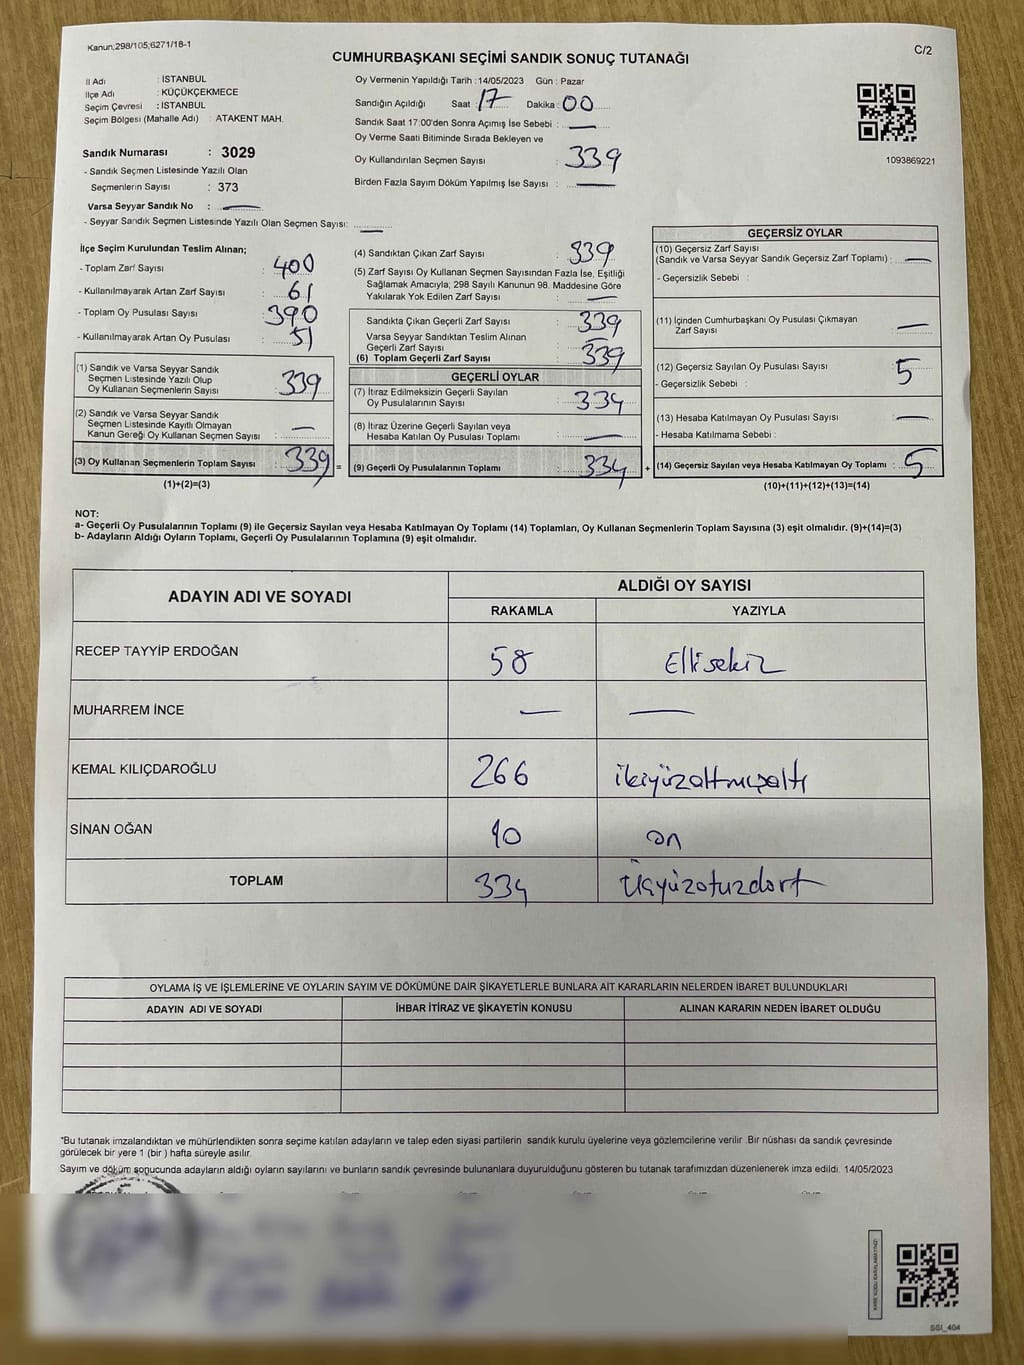 Kanun;298/105;6271/18-1
C/2
CUMHURBAŞKANI SEÇİMİ SANDIK SONUÇ TUTANAĞI
İl Adı : İSTANBUL
İlçe Adı : KÜÇÜKÇEKMECE
Seçim Çevresi : İSTANBUL
Seçim Bölgesi (Mahalle Adı) : ATAKENT MAH.
Sandık Numarası : 3029
- Sandık Seçmen Listesinde Yazılı Olan
Seçmenlerin Sayısı : 373
Varsa Seyyar Sandık No : —
- Seyyar Sandık Seçmen Listesinde Yazılı Olan Seçmen Sayısı: —
Oy Vermenin Yapıldığı Tarih : 14/05/2023 Gün : Pazar
Sandığın Açıldığı Saat : 17 Dakika : 00
Sandık Saat 17:00'den Sonra Açmış İse Sebebi : —
Oy Verme Saati Bitiminde Sırada Bekleyen ve
Oy Kullandırılan Seçmen Sayısı : 339
Birden Fazla Sayım Döküm Yapılmış İse Sayısı : —
1093869221
İlçe Seçim Kurulundan Teslim Alınan;
- Toplam Zarf Sayısı : 400
- Kullanılmayarak Artan Zarf Sayısı : 61
- Toplam Oy Pusulası Sayısı : 390
- Kullanılmayarak Artan Oy Pusulası : 51
(1) Sandık ve Varsa Seyyar Sandık
Seçmen Listesinde Yazılı Olup
Oy Kullanan Seçmenlerin Sayısı : 339
(2) Sandık ve Varsa Seyyar Sandık
Seçmen Listesinde Kayıtlı Olmayan
Kanun Gereği Oy Kullanan Seçmen Sayısı : —
(3) Oy Kullanan Seçmenlerin Toplam Sayısı : 339 =
(1)+(2)=(3)
(4) Sandıktan Çıkan Zarf Sayısı : 339
(5) Zarf Sayısı Oy Kullanan Seçmen Sayısından Fazla İse, Eşitliği
Sağlamak Amacıyla; 298 Sayılı Kanunun 98. Maddesine Göre
Yakılarak Yok Edilen Zarf Sayısı : —
Sandıkta Çıkan Geçerli Zarf Sayısı : 339
Varsa Seyyar Sandıktan Teslim Alınan
Geçerli Zarf Sayısı
(6) Toplam Geçerli Zarf Sayısı : 339
GEÇERLİ OYLAR
(7) İtiraz Edilmeksizin Geçerli Sayılan
Oy Pusulalarının Sayısı : 334
(8) İtiraz Üzerine Geçerli Sayılan veya
Hesaba Katılan Oy Pusulası Toplamı : —
(9) Geçerli Oy Pusulalarının Toplamı : 334 +
GEÇERSİZ OYLAR
(10) Geçersiz Zarf Sayısı
(Sandık ve Varsa Seyyar Sandık Geçersiz Zarf Toplamı) : —
- Geçersizlik Sebebi :
(11) İçinden Cumhurbaşkanı Oy Pusulası Çıkmayan
Zarf Sayısı : —
(12) Geçersiz Sayılan Oy Pusulası Sayısı : 5
- Geçersizlik Sebebi :
(13) Hesaba Katılmayan Oy Pusulası Sayısı : —
- Hesaba Katılmama Sebebi :
(14) Geçersiz Sayılan veya Hesaba Katılmayan Oy Toplamı : 5
(10)+(11)+(12)+(13)=(14)
NOT:
a- Geçerli Oy Pusulalarının Toplamı (9) ile Geçersiz Sayılan veya Hesaba Katılmayan Oy Toplamı (14) Toplamları, Oy Kullanan Seçmenlerin Toplam Sayısına (3) eşit olmalıdır. (9)+(14)=(3)
b- Adayların Aldığı Oyların Toplamı, Geçerli Oy Pusulalarının Toplamına (9) eşit olmalıdır.
ADAYIN ADI VE SOYADI
ALDIĞI OY SAYISI
RAKAMLA YAZIYLA
RECEP TAYYİP ERDOĞAN 58 Ellisekiz
MUHARREM İNCE — —
KEMAL KILIÇDAROĞLU 266 ikiyüzaltmışaltı
SİNAN OĞAN 10 on
TOPLAM 334 Üçyüzotuzdört
OYLAMA İŞ VE İŞLEMLERİNE VE OYLARIN SAYIM VE DÖKÜMÜNE DAİR ŞİKAYETLERLE BUNLARA AİT KARARLARIN NELERDEN İBARET BULUNDUKLARI
ADAYIN ADI VE SOYADI İHBAR İTİRAZ VE ŞİKAYETİN KONUSU ALINAN KARARIN NEDEN İBARET OLDUĞU
*Bu tutanak imzalandıktan ve mühürlendikten sonra seçime katılan adayların ve talep eden siyasi partilerin sandık kurulu üyelerine veya gözlemcilerine verilir .Bir nüshası da sandık çevresinde
görülecek bir yere 1 (bir ) hafta süreyle asılır.
Sayım ve döküm sonucunda adayların aldığı oyların sayılarını ve bunların sandık çevresinde bulunanlara duyurulduğunu gösteren bu tutanak tarafımızdan düzenlenerek imza edildi. 14/05/2023